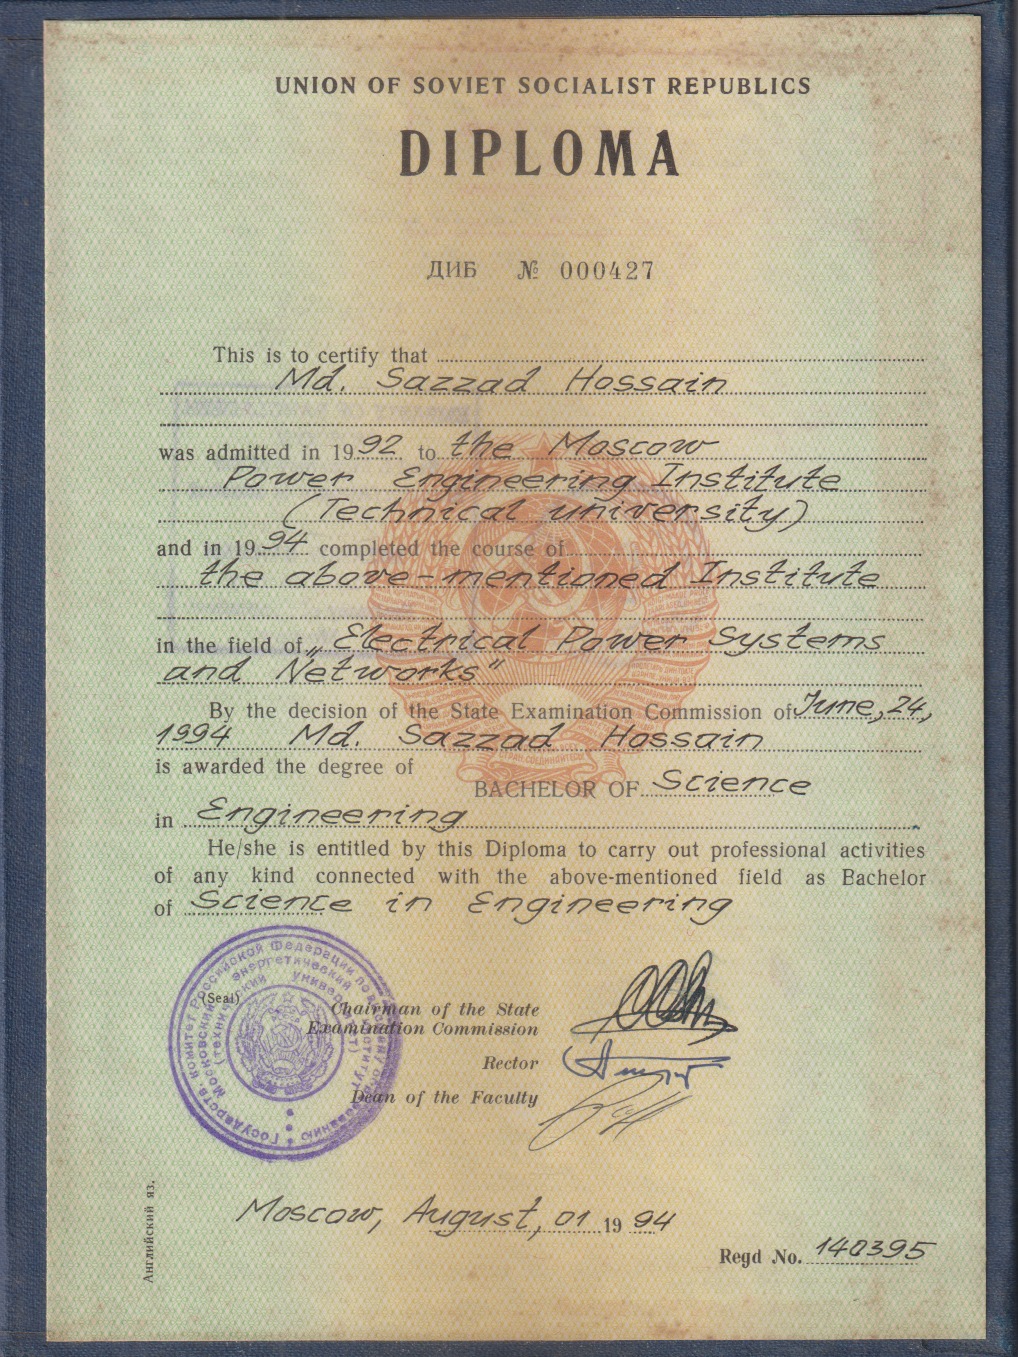 UNION OF SOVIET SOCIALIST REPUBLICS
DIPLOMA
ДИБ № 000427
This is to certify that
Md. Sazzad Hossain
was admitted in 1992 to the Moscow
Power Engineering Institute
(Technical university)
and in 1994 completed the course of
the above-mentioned Institute
in the field of „Electrical Power Systems
and Networks"
By the decision of the State Examination Commission of June, 24,
1994 Md. Sazzad Hossain
is awarded the degree of
BACHELOR OF Science
in Engineering
He/she is entitled by this Diploma to carry out professional activities
of any kind connected with the above-mentioned field as Bachelor
of Science in Engineering
(Seal)
Chairman of the State
Examination Commission
Rector
Dean of the Faculty
Государств. комитет Российской Федерации по высшему образованию
Московский энергетический институт
(технический университет)
Moscow, August, 01 1994
Regd No. 140395
Английский яз.